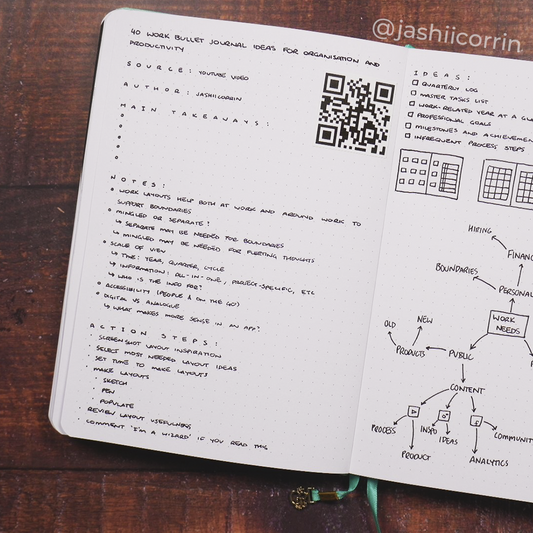 @jashiicorrin
40 WORK BULLET JOURNAL IDEAS FOR ORGANISATION AND
PRODUCTIVITY
SOURCE: YOUTUBE VIDEO
AUTHOR: JASHIICORRIN
MAIN TAKEAWAYS:
NOTES:
WORK LAYOUTS HELP BOTH AT WORK AND AROUND WORK TO
SUPPORT BOUNDARIES
MINGLED OR SEPARATE?
↳ SEPARATE MAY BE NEEDED FOR BOUNDARIES
↳ MINGLED MAY BE NEEDED FOR FLEETING THOUGHTS
SCALE OF VIEW
↳ TIME: YEAR, QUARTER, CYCLE
↳ INFORMATION: ALL-IN-ONE, PROJECT-SPECIFIC, ETC
↳ WHO IS THE INFO FOR?
ACCESSIBILITY (PEOPLE & ON THE GO)
DIGITAL VS ANALOGUE
↳ WHAT MAKES MORE SENSE IN AN APP?
ACTION STEPS:
· SCREENSHOT LAYOUT INSPIRATION
· SELECT MOST NEEDED LAYOUT IDEAS
· SET TIME TO MAKE LAYOUTS
· MAKE LAYOUTS
· SKETCH
· PEN
· POPULATE
· REVIEW LAYOUT USEFULNESS
COMMENT 'I'M A WIZARD' IF YOU READ THIS
IDEAS:
QUARTERLY LOG
MASTER TASKS LIST
WORK-RELATED YEAR AT A
PROFESSIONAL GOALS
MILESTONES AND
INFREQUENT PROCESS STEPS
HIRING
BOUNDARIES
PERSONAL
WORK
NEEDS
OLD
NEW
PRODUCTS
PUBLIC
CONTENT
PROCESS
INSPO
IDEAS
COMMUNITY
PRODUCT
ANALYTICS